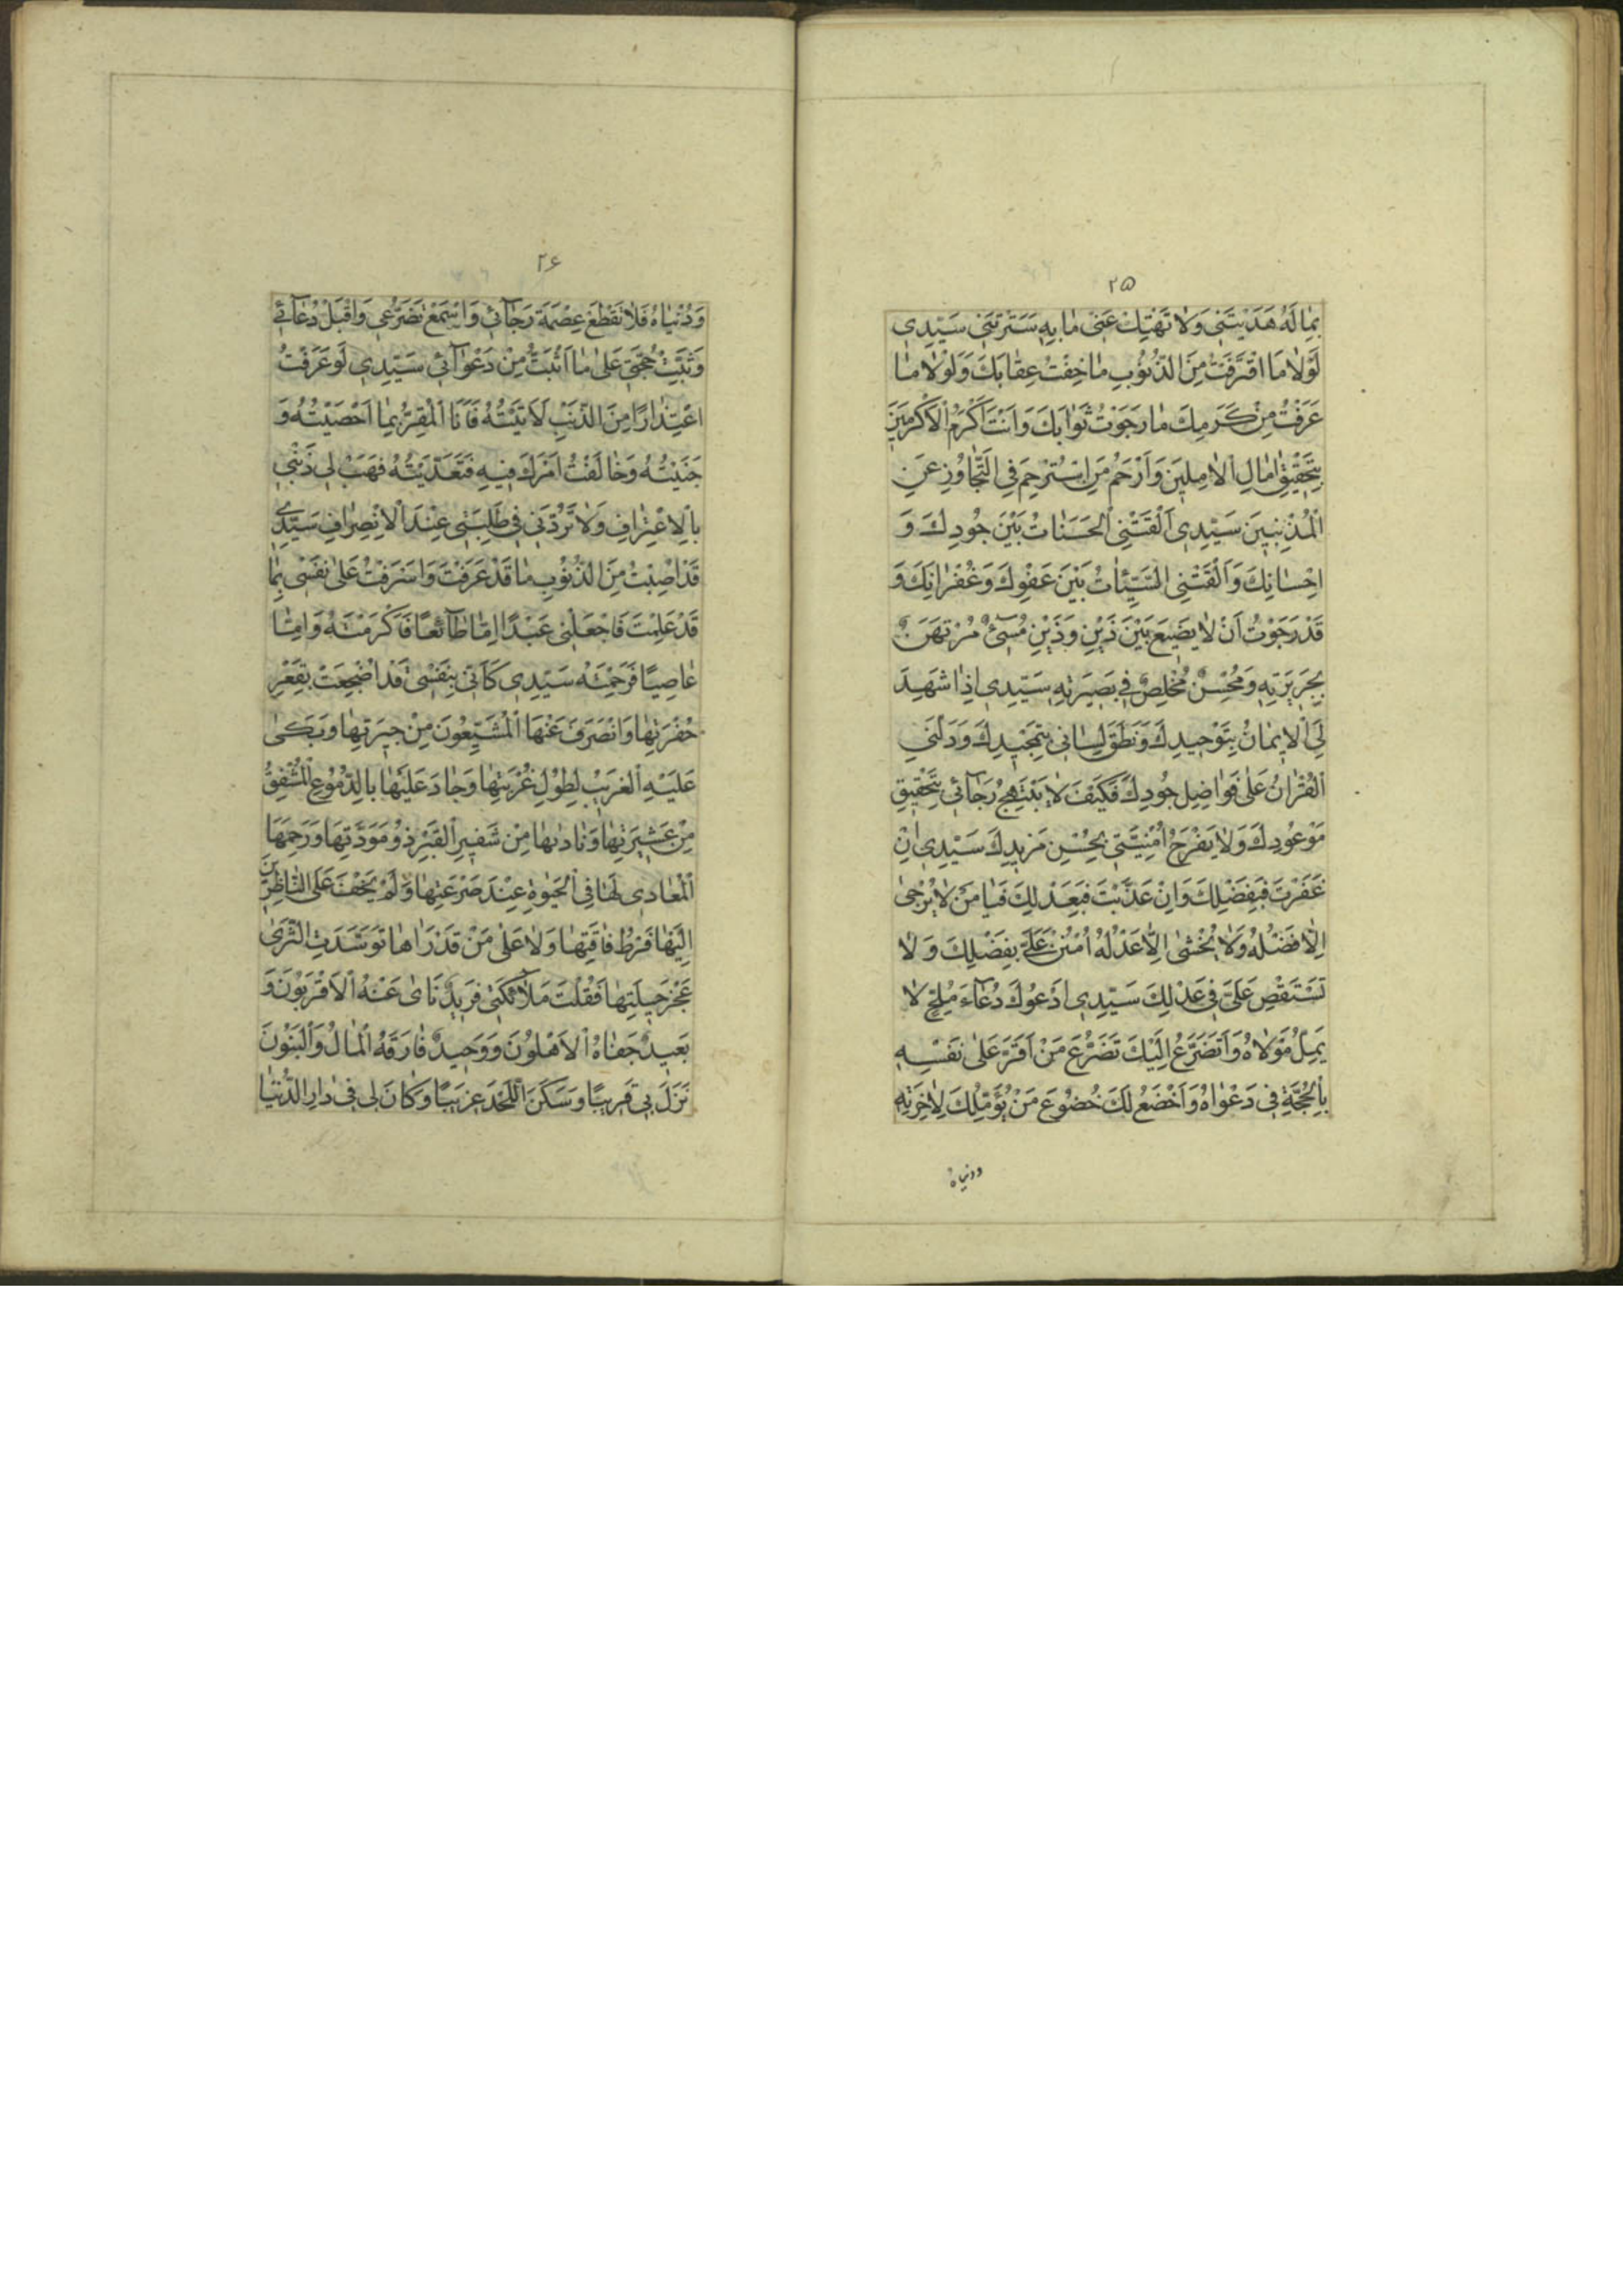 ٢٥
بِمَا لَهُ هَدَيْتَنِي وَلَا تَهْتِكْ عَنِّي مَا بِهِ سَتَرْتَنِي سَيِّدِي
لَوْلَا مَا اقْتَرَفْتُ مِنَ الذُّنُوبِ مَا خِفْتُ عِقَابَكَ وَلَوْلَا مَا
عَرَفْتُ مِنْ كَرَمِكَ مَا رَجَوْتُ ثَوَابَكَ وَاَنْتَ اَكْرَمُ الْاَكْرَمِينَ
بِتَحْقِيقِ اٰمَالِ الْاٰمِلِينَ وَاَرْحَمُ مَنِ اسْتُرْحِمَ فِي التَّجَاوُزِ عَنِ
الْمُذْنِبِينَ سَيِّدِي اَلْقَتْنِي الْحَسَنَاتُ بَيْنَ جُودِكَ وَ
اِحْسَانِكَ وَاَلْقَتْنِي السَّيِّئَاتُ بَيْنَ عَفْوِكَ وَغُفْرَانِكَ وَ
قَدْ رَجَوْتُ اَنْ لَا يَضِيعَ بَيْنَ ذَيْنِ وَذَيْنِ مُسِيءٌ مُرْتَهَنٌ
بِجَرِيرَتِهِ وَمُحْسِنٌ مُخْلِصٌ فِي بَصِيرَتِهِ سَيِّدِي اِذَا شَهِدَ
لِيَ الْاِيمَانُ بِتَوْحِيدِكَ وَنَطَقَ لِسَانِي بِتَمْجِيدِكَ وَدَلَّنِي
الْقُرْاٰنُ عَلَى فَوَاضِلِ جُودِكَ فَكَيْفَ لَا يَبْتَهِجُ رَجَآئِي بِتَحْقِيقِ
مَوْعُودِكَ وَلَا يَفْرَحُ اُمْنِيَّتِي بِحُسْنِ مَزِيدِكَ سَيِّدِي اِنْ
غَفَرْتَ فَبِفَضْلِكَ وَاِنْ عَذَّبْتَ فَبِعَدْلِكَ فَيَا مَنْ لَا يُرْجَى
اِلَّا فَضْلُهُ وَلَا يُخْشَى اِلَّا عَدْلُهُ اُمْنُنْ عَلَيَّ بِفَضْلِكَ وَلَا
تَسْتَقْصِ عَلَيَّ فِي عَدْلِكَ سَيِّدِي اَدْعُوكَ دُعَآءَ مُلِحٍّ لَا
يَمِلُّ مَوْلَاهُ وَاَتَضَرَّعُ اِلَيْكَ تَضَرُّعَ مَنْ اَقَرَّ عَلَى نَفْسِهِ
بِالْحُجَّةِ فِي دَعْوَاهُ وَاَخْضَعُ لَكَ خُضُوعَ مَنْ يُؤَمِّلُكَ لِاٰخِرَتِهِ
ودنياهُ
٢۶
وَدُنْيَاهُ فَلَا تَقْطَعْ عِصْمَةَ رَجَآئِي وَاسْمَعْ تَضَرُّعِي وَاقْبَلْ دُعَآئِي
وَثَبِّتْ حُجَّتِي عَلَى مَا اَثْبَتُّ مِنْ دَعْوَآئِي سَيِّدِي لَوْ عَرَفْتُ
اعْتِذَارًا مِنَ الذَّنْبِ لَاَتَيْتُهُ فَاَنَا الْمُقِرُّ بِمَا اَحْصَيْتُهُ وَ
جَنَيْتُهُ وَخَالَفْتُ اَمْرَكَ فِيهِ فَتَعَدَّيْتُهُ فَهَبْ لِي ذَنْبِي
بِالْاِعْتِرَافِ وَلَا تَرُدَّنِي فِي طَلِبَتِي عِنْدَ الْاِنْصِرَافِ سَيِّدِي
قَدْ اَصَبْتُ مِنَ الذُّنُوبِ مَا قَدْ عَرَفْتَ وَاَسْرَفْتُ عَلَى نَفْسِي بِمَا
قَدْ عَلِمْتَ فَاجْعَلْنِي عَبْدًا اِمَّا طَآئِعًا فَاَكْرَمْتَهُ وَاِمَّا
عَاصِيًا فَرَحِمْتَهُ سَيِّدِي كَاَنِّي بِنَفْسِي قَدْ اُضْجِعَتْ بِقَعْرِ
حُفْرَتِهَا وَانْصَرَفَ عَنْهَا الْمُشَيِّعُونَ مِنْ جِيرَتِهَا وَبَكَى
عَلَيْهِ الْغَرِيبُ لِطُولِ غُرْبَتِهَا وَجَادَ عَلَيْهَا بِالدُّمُوعِ الْمُشْفِقُ
مِنْ عَشِيرَتِهَا وَنَادَاهَا مِنْ شَفِيرِ الْقَبْرِ ذُو مَوَدَّتِهَا وَرَحِمَهَا
الْمُعَادِي لَهَا فِي الْحَيٰوةِ عِنْدَ صَرْعَتِهَا وَلَمْ يَخْفَ عَلَى النَّاظِرِينَ
اِلَيْهَا فَرْطُ فَاقَتِهَا وَلَا عَلَى مَنْ قَدْ رَاٰهَا تَوَسَّدَتِ الثَّرَى
عَجْزُ حِيلَتِهَا فَقُلْتَ مَلَآئِكَتِي فَرِيدٌ نَاٰى عَنْهُ الْاَقْرَبُونَ وَ
بَعِيدٌ جَفَاهُ الْاَهْلُونَ وَوَحِيدٌ فَارَقَهُ الْمَالُ وَالْبَنُونَ
نَزَلَ بِي قَرِيبًا وَسَكَنَ اللَّحْدَ غَرِيبًا وَكَانَ لِي فِي دَارِ الدُّنْيَا